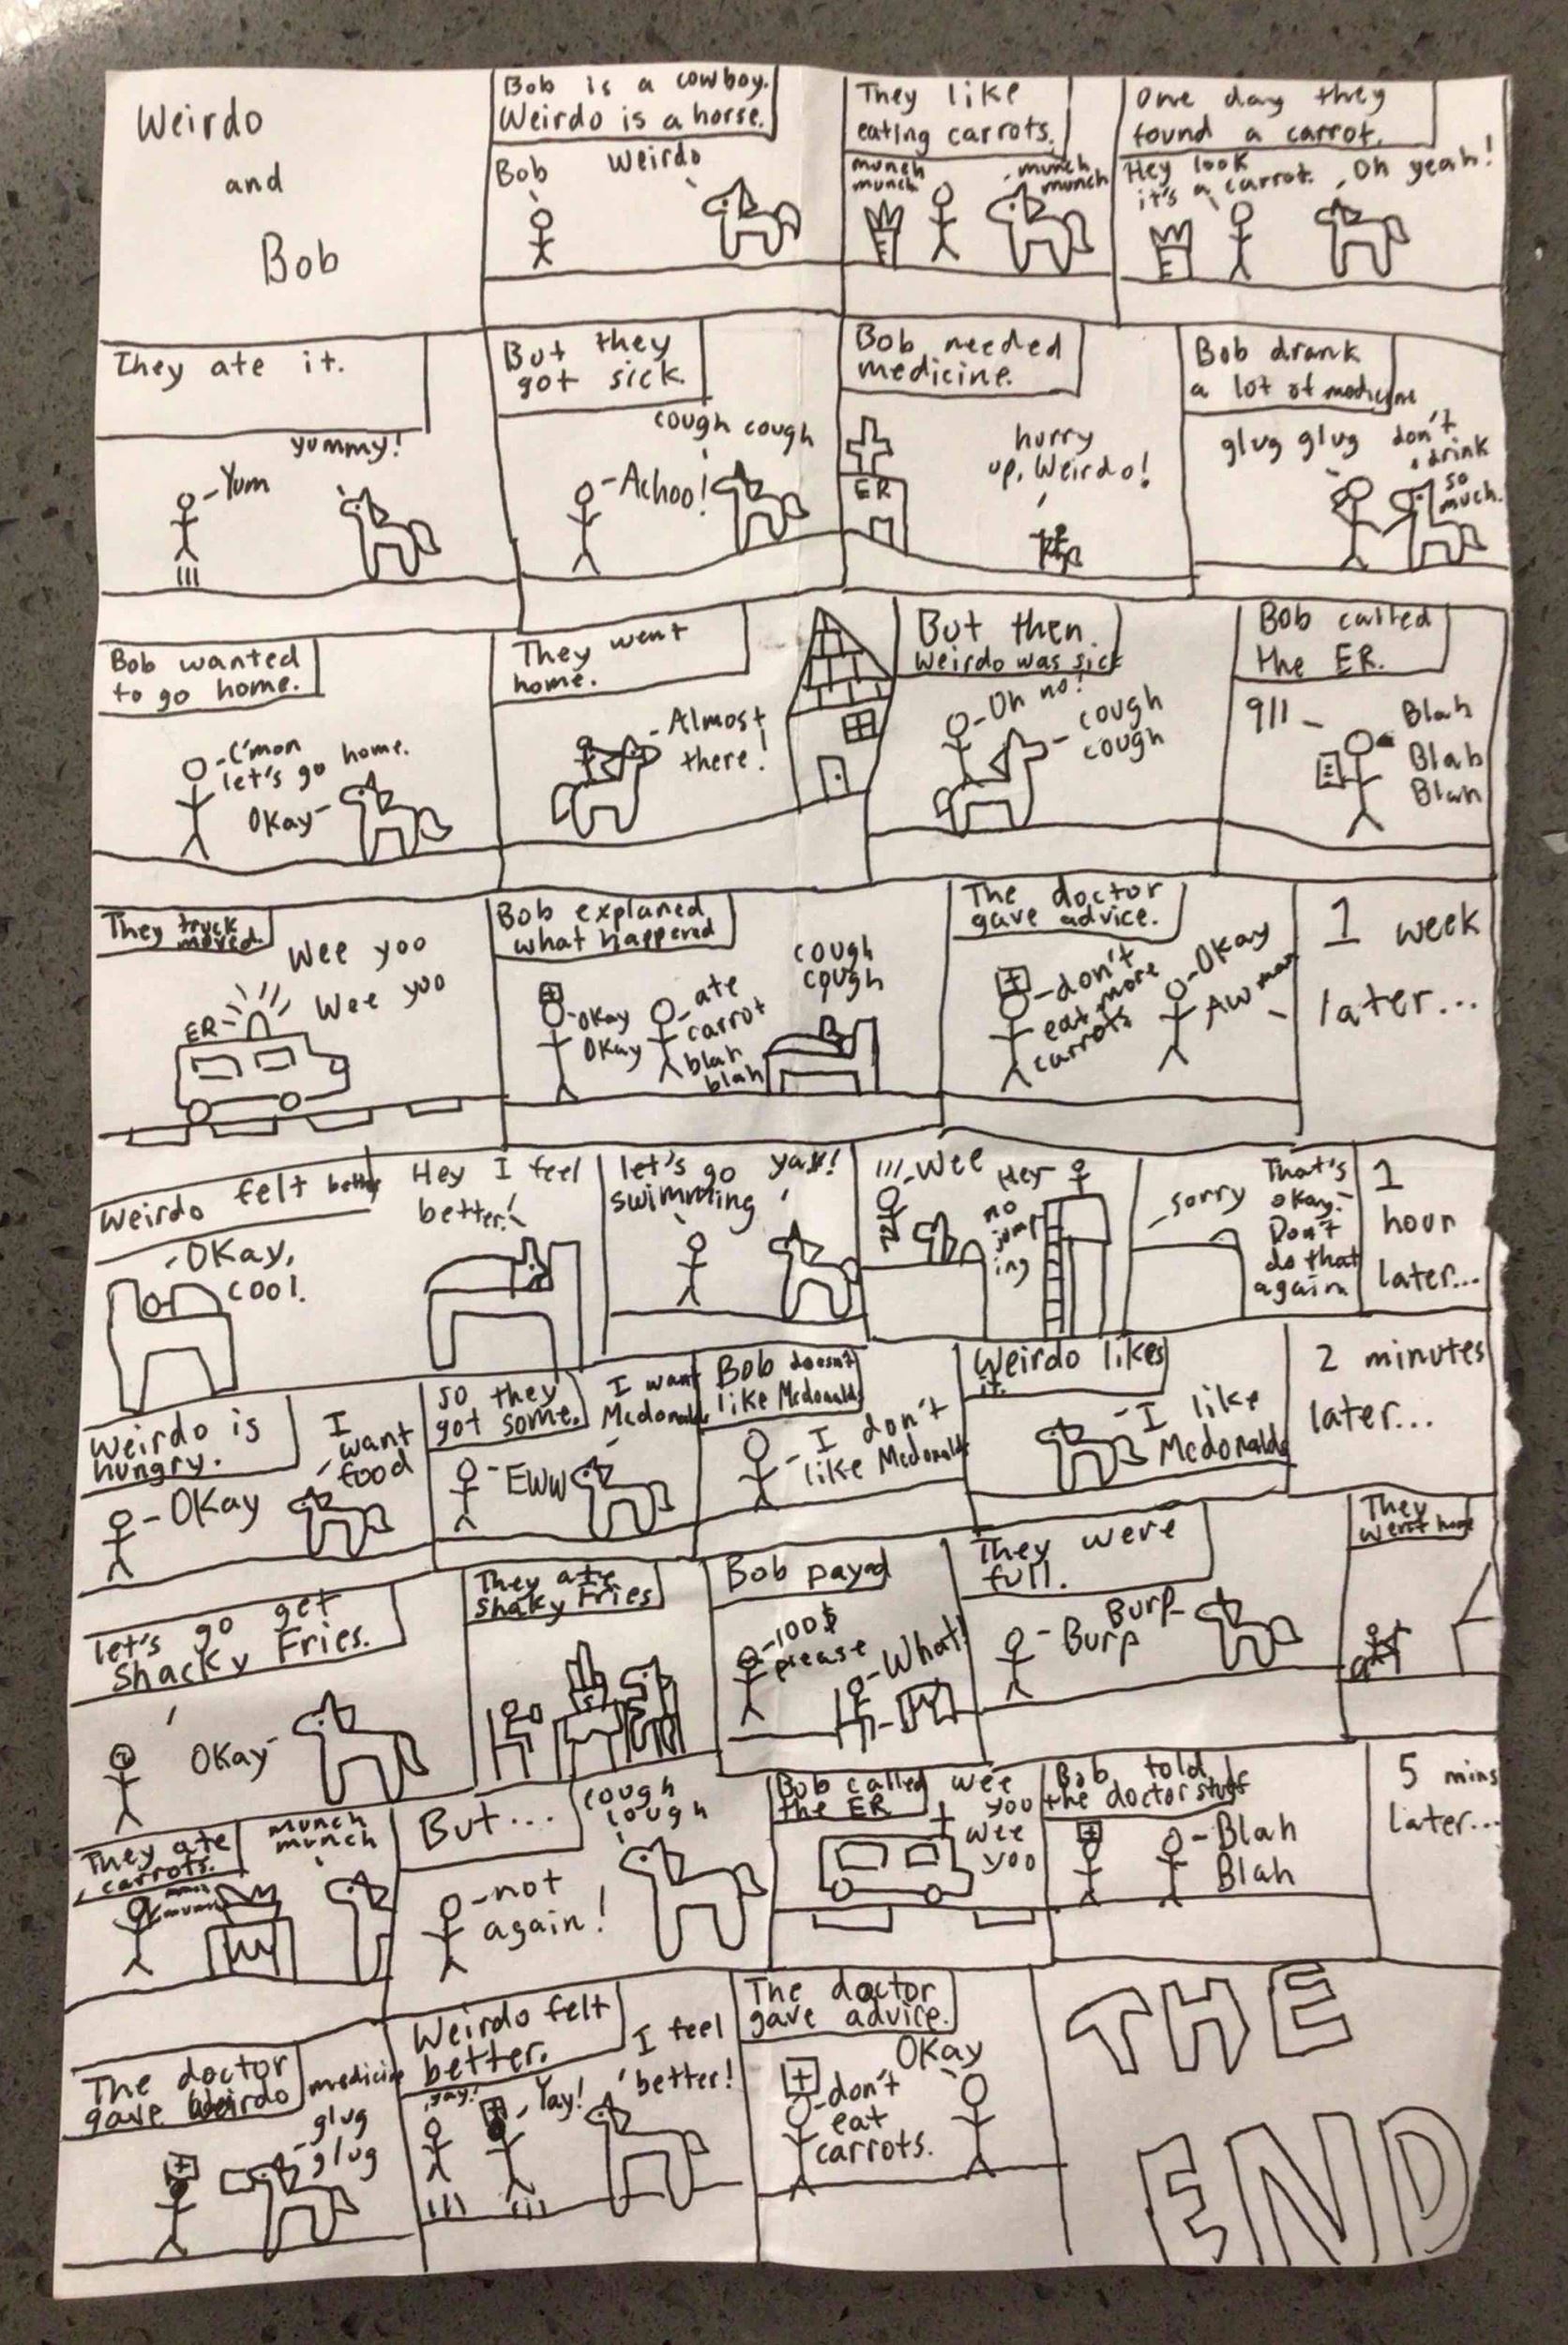 Weirdo
and
Bob
Bob is a cowboy.
Weirdo is a horse.
Bob
Weirdo
They like
eating carrots.
munch
munch
munch
munch
One day they
found a carrot.
Hey look
it's a carrot.
Oh yeah!
They ate it.
Yum
yummy!
But they
got sick.
Achoo!
cough cough
Bob needed
medicine.
ER
hurry
up, Weirdo!
Bob drank
a lot of medicine
glug glug
don't
drink
so
much.
Bob wanted
to go home.
C'mon
let's go home.
Okay
They went
home.
Almost
there!
But then
Weirdo was sick
Oh no!
cough
cough
Bob called
the ER.
911
Blah
Blah
Blah
They truck
moved.
Wee yoo
Wee yoo
ER
Bob explaned
what happened
Okay
Okay
ate
carrot
blah
blah
cough
cough
The doctor
gave advice.
don't
eat more
carrots
Okay
Aw man
1 week
later...
Weirdo felt better
Hey I feel
better!
Okay,
cool.
let's go
swimming
yay!
Wee
Hey
no
jump
ing
sorry
That's
okay.
Don't
do that
again
1
hour
later...
Weirdo is
hungry.
I
want
food
Okay
So they
got some.
I want
Mcdonalds
Eww
Bob doesn't
like Mcdonalds
I don't
like Mcdonalds
Weirdo likes
it.
I like
Mcdonalds
2 minutes
later...
let's go get
Shacky Fries.
Okay
They ate
Shaky Fries
Bob payed
100$
please
What!
They were
full.
Burp
Burp
They
went home
They ate
carrots.
munch
munch
But...
cough
cough
not
again!
Bob called
the ER
wee
yoo
wee
yoo
Bob told
the doctor stuff
Blah
Blah
5 mins
later...
The doctor
gave Weirdo
medicine
glug
glug
Weirdo felt
better.
yay!
Yay!
I feel
better!
The doctor
gave advice.
don't
eat
carrots.
Okay
THE
END